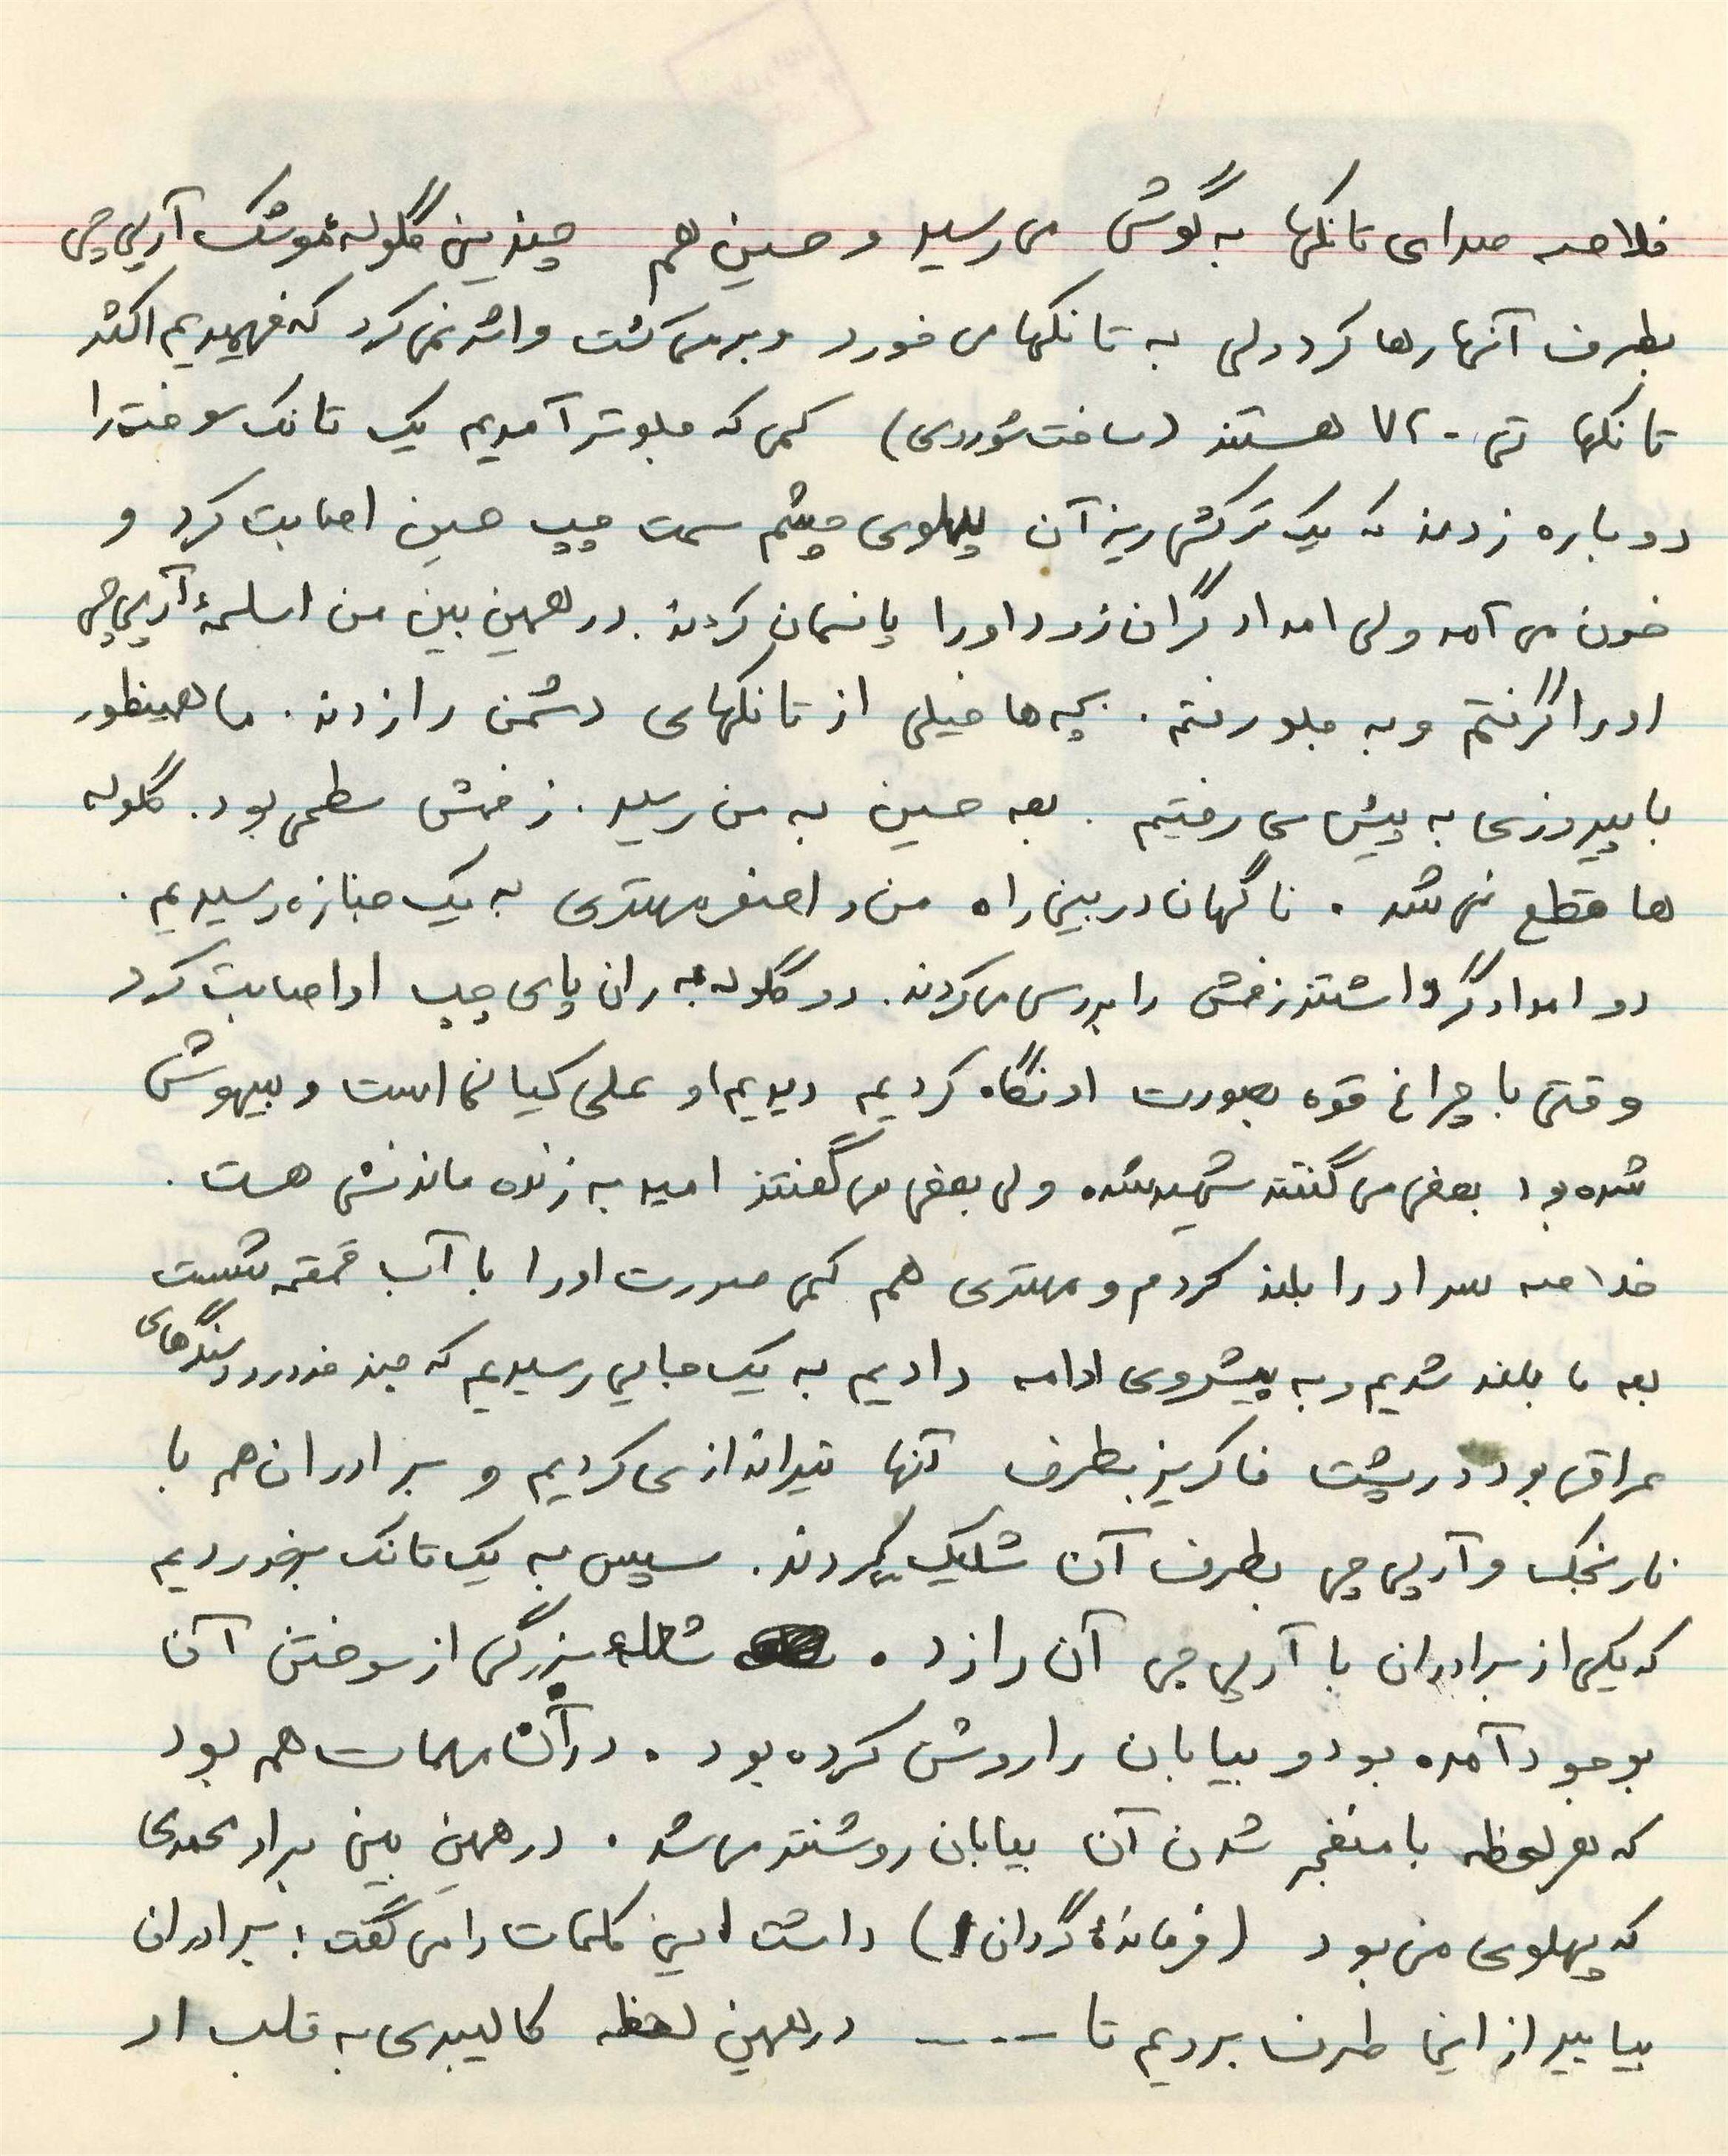 خلاصه صدای تانکها به گوش می رسید و حسین هم چندین گلوله موشک آرپی جی
بطرف آنها رها کرد ولی به تانکها می خورد و برمی گشت و اثر نمی کرد که فهمیدیم اکثر
تانکها تی - ۷۲ هستند (ساخت شوروی) کمی که جلوتر آمدیم یک تانک سوخته را
دوباره زدند که یک ترکش ریز آن پهلوی چشم سمت چپ حسین اصابت کرد و
خون می آمد ولی امدادگران زود او را پانسمان کردند. در همین بین من اسلحهٔ آرپی جی
او را گرفتم و به جلو رفتم . بچه ها خیلی از تانکهای دشمن را زدند . ما همینطور
با پیروزی به پیش می رفتیم . بعد حسین به من رسید . زخمش سطحی بود . گلوله
ها قطع نمی شد . ناگهان در بین راه من و اصغر مهتری به یک جنازه رسیدیم .
دو امدادگر داشتند زخمش را بررسی می کردند . دو گلوله به ران پای چپ او اصابت کرد
وقتی با چراغ قوه بصورت او نگاه کردیم دیدیم او علی کیان نما است و بیهوش
شده بود بعضی می گفتند شهید شده ولی بعضی می گفتند امید به زنده ماندنش هست .
خلاصه سر او را بلند کردم و مهتری هم کمی صورت او را با آب قمقمه شست
بعد ما بلند شدیم و به پیشروی ادامه دادیم به یک جایی رسیدیم که چند خودرو و سنگرهای
عراقی بود در پشت خاکریز بطرف آنها تیراندازی کردیم و برادران هم با
نارنجک و آرپی جی بطرف آن شلیک کردند . سپس به یک تانک برخوردیم
که یکی از برادران با آرپی جی آن را زد . شعلهٔ بزرگی از سوختن آن
بوجود آمده بود و بیابان را روشن کرده بود . در آن مهمات هم بود
که هر لحظه با منفجر شدن آن بیابان روشنتر می شد . در همین بین برادر محمدی
که پهلوی من بود (فرماندهٔ گردان ۱) داشت این کلمات را می گفت : برادران
بیایید از این طرف برویم تا ---- در همین لحظه کالیبری به قلب او